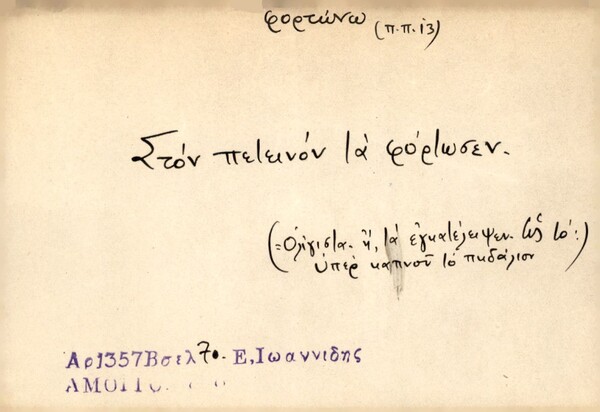 φορτώνω (π.π. 13)
Στόν πετεινόν τά φόρτωσεν.
(=Ολίγιστα. ἤ, τά ἐγκατέλειψεν. Ὡς τό:
ὑπέρ καπνοῦ τό πηδάλιον)
Αρ1357Βσελ70. Ε,Ιωαννιδης